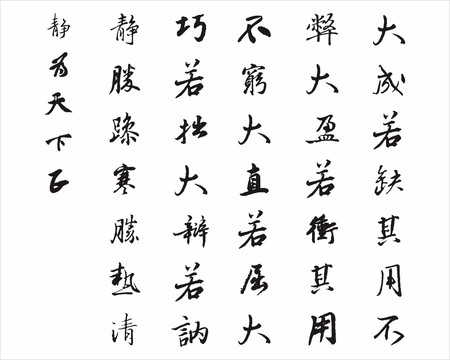 大成若缺其用不
弊大盈若衝其用
不窮大直若屈大
巧若拙大辯若訥
静勝躁寒勝熱清
静為天下正